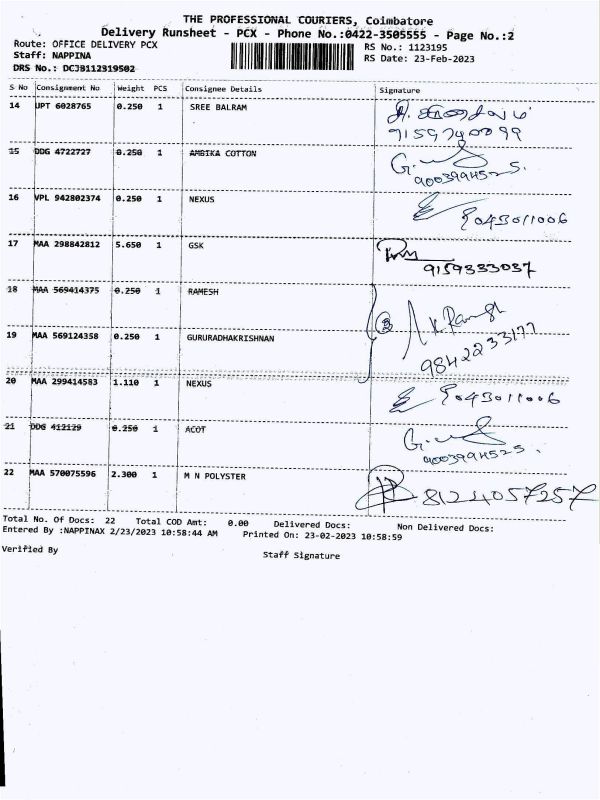 THE PROFESSIONAL COURIERS, Coimbatore
Delivery Runsheet - PCX - Phone No.:0422-3505555 - Page No.:2
Route: OFFICE DELIVERY PCX
RS No.: 1123195
Staff: NAPPINA
RS Date: 23-Feb-2023
DRS No.: DCJB112319502
S No Consignment No Weight PCS Consignee Details Signature
14 UPT 6028765 0.250 1 SREE BALRAM
15 DDG 4722727 0.250 1 AMBIKA COTTON
9003994525.
16 VPL 942802374 0.250 1 NEXUS
9043011006
17 MAA 298842812 5.650 1 GSK
9159333037
18 MAA 569414375 0.250 1 RAMESH
K. Ramesh
19 MAA 569124358 0.250 1 GURURADHAKRISHNAN
9842233177
20 MAA 299414583 1.110 1 NEXUS
9043011006
21 DDG 412129 0.250 1 ACOT
9003994525.
22 MAA 570075596 2.300 1 M N POLYSTER
8124057257
Total No. Of Docs: 22 Total COD Amt: 0.00 Delivered Docs: Non Delivered Docs:
Entered By :NAPPINAX 2/23/2023 10:58:44 AM Printed On: 23-02-2023 10:58:59
Verified By Staff Signature